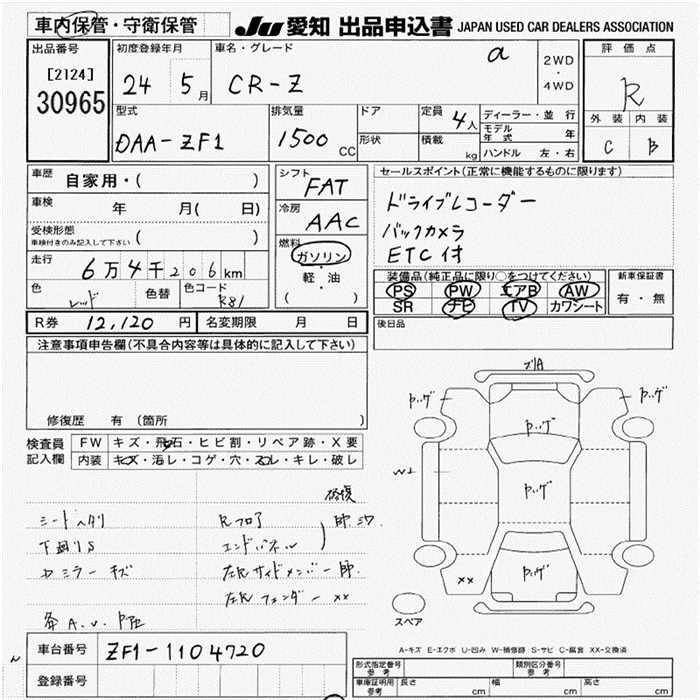 車内保管・守衛保管
JU 愛知 出品申込書 JAPAN USED CAR DEALERS ASSOCIATION
出品番号
[2124]
30965
初度登録年月
24 5月
車名・グレード
CR-Z
a
2WD
・
4WD
評価点
R
外装 内装
C B
型式
DAA-ZF1
排気量
1500 CC
ドア
形状
定員 4人
積載 kg
ディーラー・並行
モデル年式 年
ハンドル 左・右
車歴 自家用・( )
車検 年 月( 日)
受検形態
車検付きのみ記入して下さい ( )
走行 6万4千206km
色 レッド 色替 色コード R81
シフト FAT
冷房 AAC
燃料 ガソリン
・
軽・油
( )
セールスポイント(正常に機能するものに限ります)
ドライブレコーダー
バックカメラ
ETC付
装備品(純正品に限り○をつけてください)
PS PW エアB AW
SR ナビ TV カワシート
新車保証書
有・無
R券 12,120 円 名変期限 月 日
後日品
注意事項申告欄(不具合内容等は具体的に記入して下さい)
修復歴 有 (箇所 )
検査員
記入欄
FW キズ・飛石・ヒビ割・リペア跡・X要
内装 キズ・汚レ・コゲ・穴・スレ・キレ・破レ
修復
シートヘタリ
下廻りS
Rフロア
エンドパネル
ドミラーキズ
左Rサイドメンバー
左Rフェンダー XX
A
ヤッゲ
ヤッゲ
ヤッゲ
W1
ヤッゲ
ヤッゲ
XX
スペア
A-キズ E-エクボ U-凹み W-補修跡 S-サビ C-腐食 XX-交換済
車台番号 ZF1-1104720
登録番号
形式指定番号
参考
類別区分番号
参考
車庫証明用
参考
長さ cm 幅 cm 高さ cm